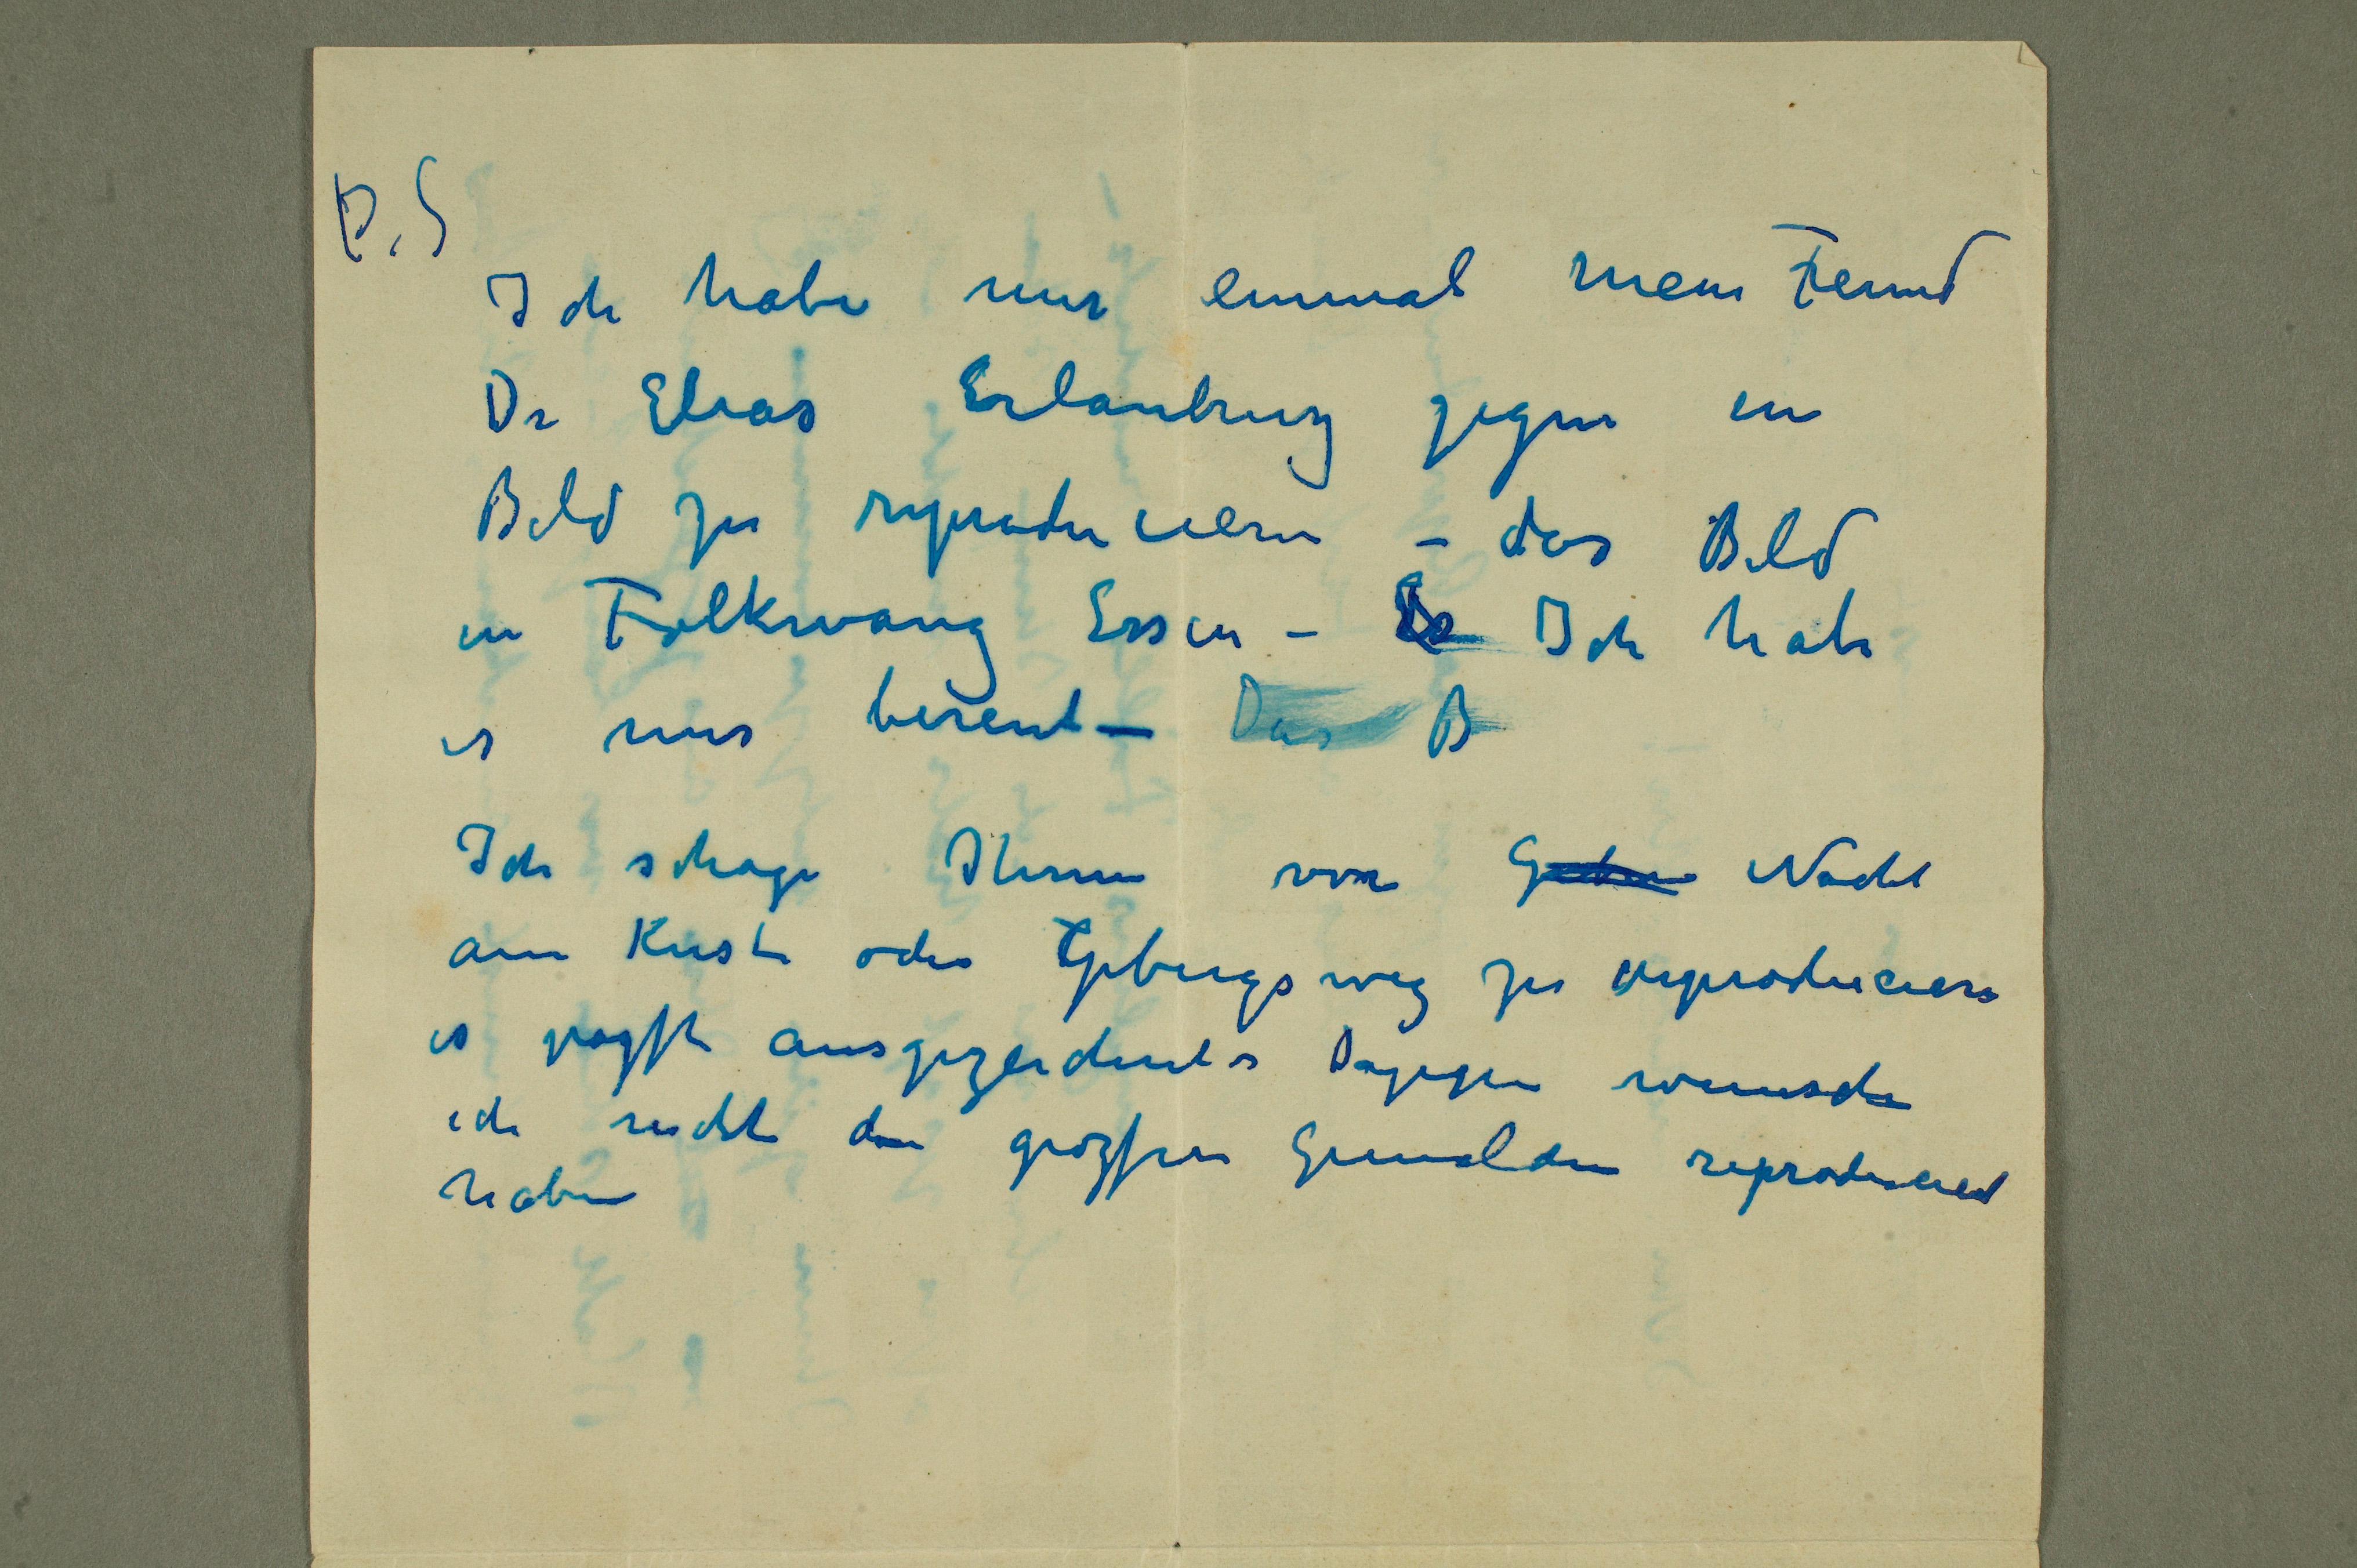 P.S
Ich habe nur einmal mein Feund
Dr Elias Erlaubnis gegen ein
Bild zu reproducieren – das Bild
in Folkwang Essen – Es Ich habe
es nur bereut – Das B
Ich schage Ihnen vor Nacht
am Kuste oder Gebirgsweg zu reproducieren
es pazfst ausgezeichnetes Dagegen wunsche
ich nicht die grozfsen Gemälden reproduciert
haben